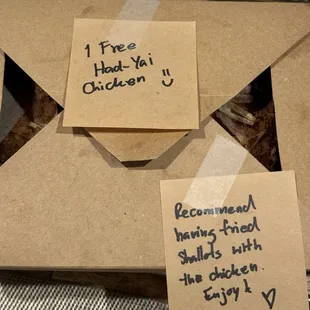 1 Free
Had-Yai
Chicken :)
Recommend
having fried
Shallots with
the chicken.
Enjoy! ♡